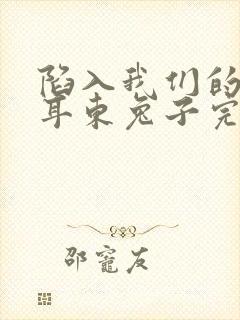 陷入我们的
耳东兔子完
邵窕友